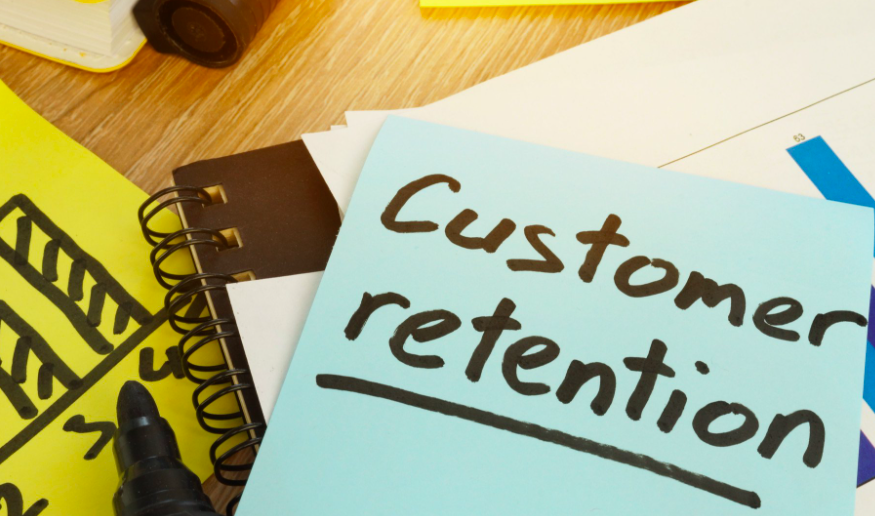 Customer
retention